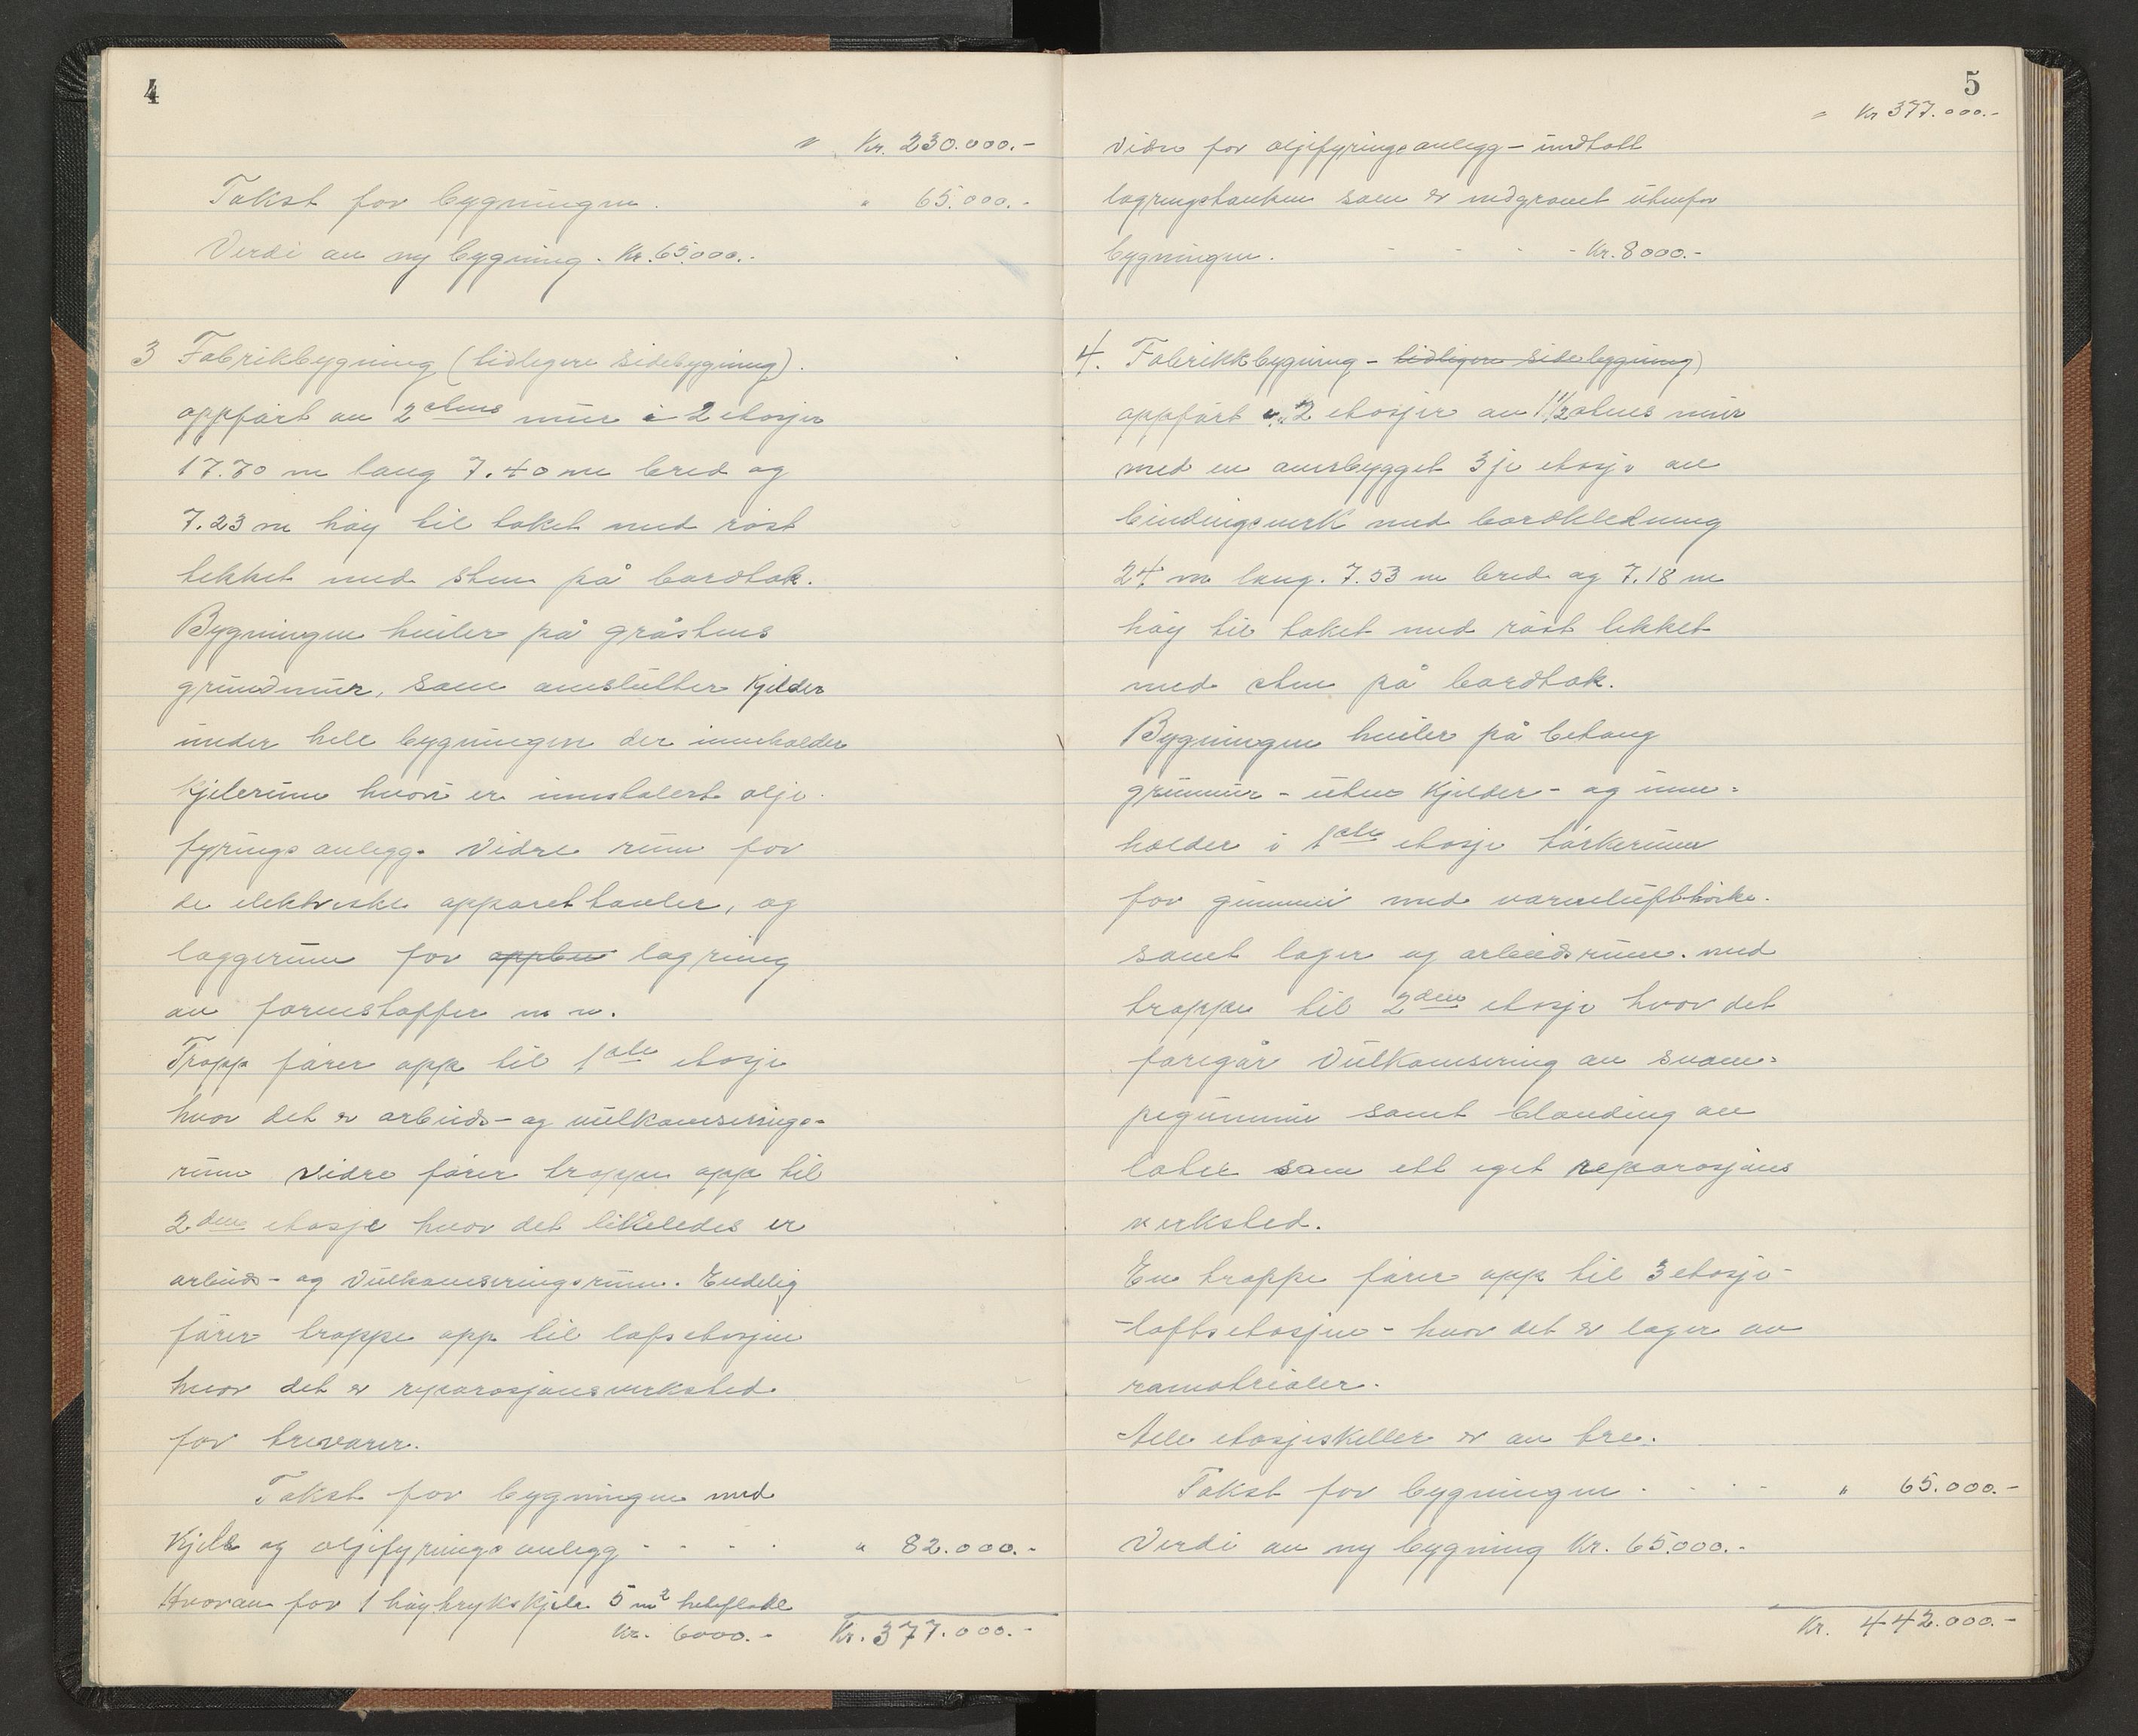 4
" Kr. 230.000.-
Takst for bygningen. " 65.000.-
Verdi av ny bygning. Kr. 65000.-
3 Fabrikbygning (tidligere sidebygning).
oppført av 2 stens mur i 2 etasjer
17.70 m lang 7.40 m bred og
7.23 m høy til taket med røst
tekket med sten på bordtak.
Bygningen hviler på gråstens
grundmur, som omslutter kjelder
under hele bygningen der inneholder
kjelerum hvori er innstalert olje-
fyringsanlegg. Vidre rum for
de elektriske apparattavler, og
laggerum for lagring
av formstoffer m m.
Trapp fører opp til 1ste etasje
hvor det er arbeids- og vulkaniserings-
rum vidre fører trappe opp til
2den etasje hvor det likeledes er
arbeids- og vulkaniseringsrum. Endelig
fører trappe opp til lofsetasjen
hvor det er reparasjonsverksted
for trevarer.
Takst for bygningen med
Kjele og oljefyringsanlegg - - - - " 82.000.-
Hvorav for 1 høytrykskjele 5 m² heteflate
Kr. 6000.- Kr. 377.000.-
5
" Kr 377.000.-
Vidre for oljefyringsanlegg - indtatt
lagringstanken som er nedgravet utenfor
bygningen. - - - - Kr. 8000.-
4. Fabrikkbygning - tidligere sidebygning)
oppført i 2 etasjer av 1 1/2 stens mur
med en ombygget 3je etasje av
bindingsverk med bordkledning
24 m lang. 7.53 m bred og 7.18 m
høy til taket med røst tekket
med sten på bordtak.
Bygningen hviler på betong
grunmur - uten kjelder - og inne-
holder i 1ste etasje tørkerum
for gummi med varmelufttørke.
samt lager og arbeidsrum. med
trappe til 2den etasje hvor det
foregår vulkanisering av svam-
pegummi samt blanding av
latex som ett eget reparasjons
verksted.
En trappe fører opp til 3 etasje -
-loftsetasjen - hvor det er lager av
ramatrialer.
Alle etasjeskiller er av tre.
Takst for bygningen - - - - " 65.000.-
Verdi av ny bygning Kr. 65.000.-
Kr. 442.000.-